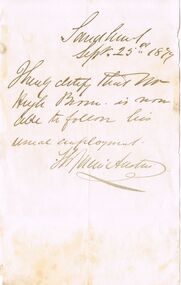 Sandhurst
Sept. 25th 1877
I hereby certify that Mr
Hugh Brown is now
able to follow his
usual employment.